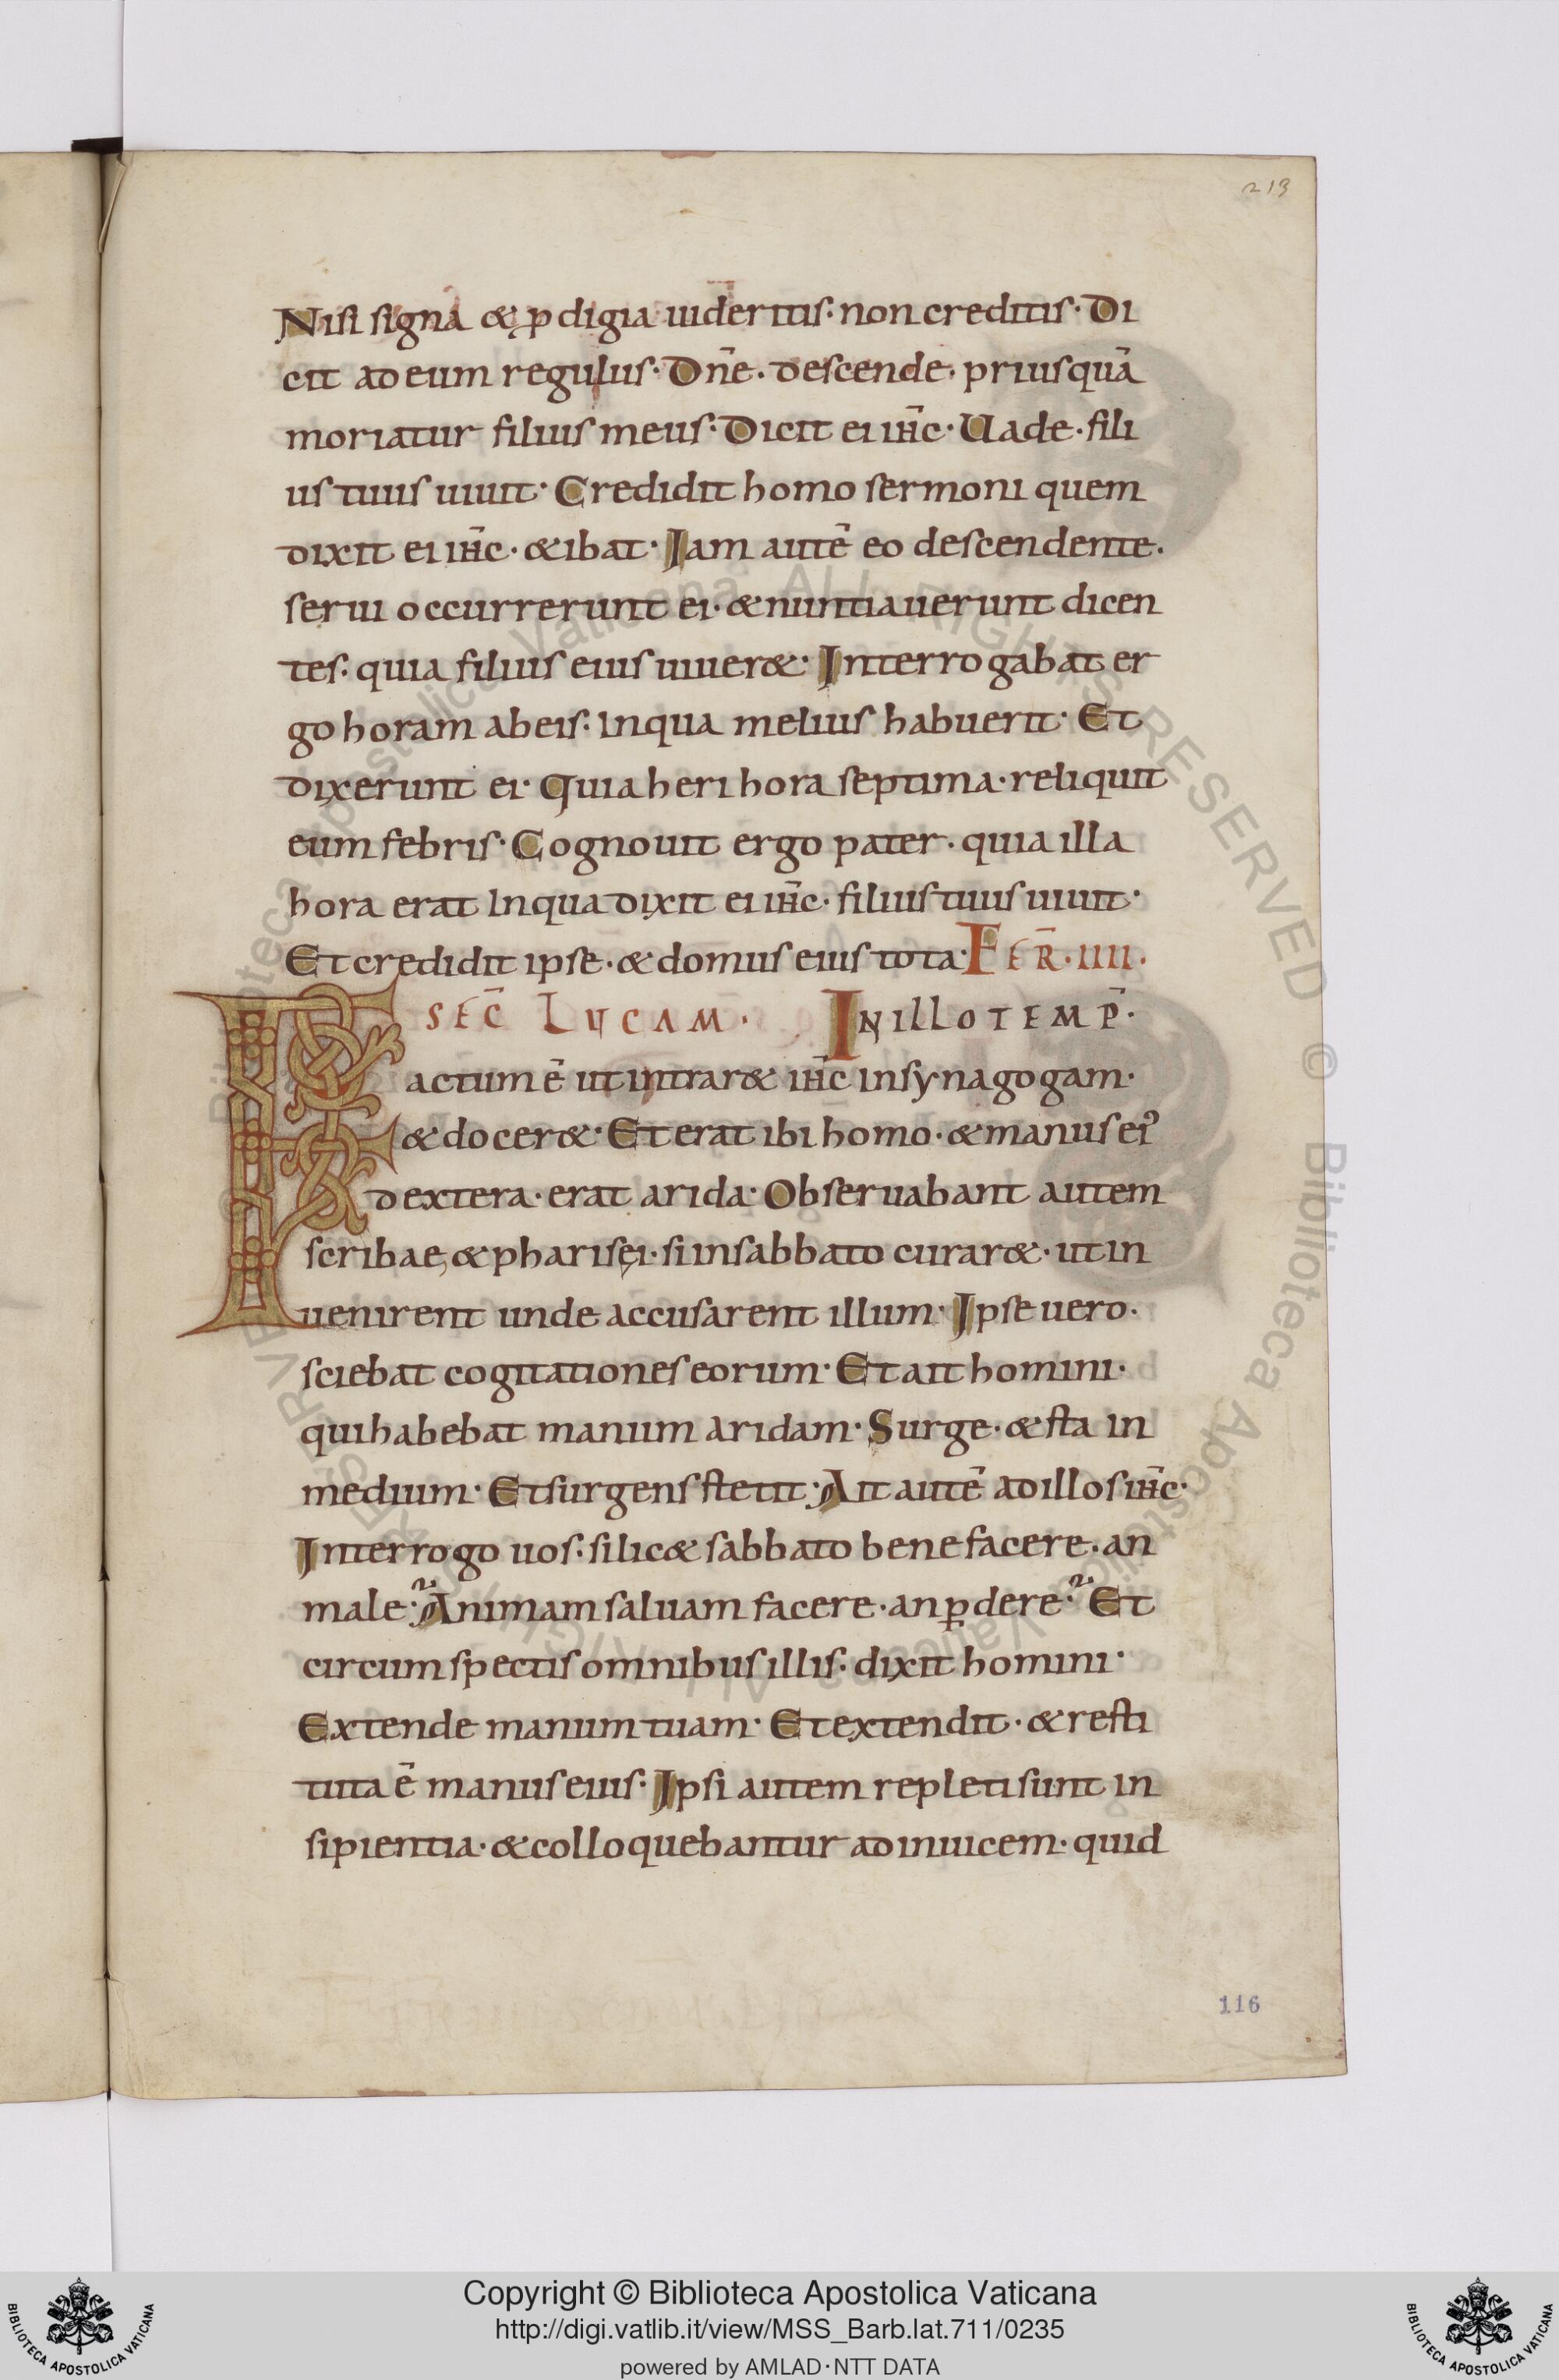 213
Nisi signa & ꝓdigia uideritis· non creditis· Di
cit ad eum regulus· Dn̄e· descende· priusquā
moriatur filius meus· Dicit ei ih̄c· Uade· fili
us tuus uiuit· Credidit homo sermoni quem
dixit ei ih̄c· & ibat· Iam autē eo descendente·
serui occurrerunt ei· & nuntiauerunt dicen
tes· quia filius eius uiuer&· Interrogabat er
go horam ab eis· In qua melius habuerit· Et
dixerunt ei· Quia heri hora septima· reliquit
eum febris· Cognouit ergo pater· quia illa
hora erat In qua dixit ei ih̄c· filius tuus uiuit·
Et credidit ipse· & domus eius tota· FER̄· IIII·
SEC̄ LUCAM· IN ILLO TEMP̄·
Factum ē ut intrar& ih̄c in synagogam·
& docer&· Et erat ibi homo· & manus eiꝰ
dextera· erat arida· Obseruabant autem
scribae, & pharisęi· si in sabbato curar&· ut in
uenirent unde accusarent illum· Ipse uero·
sciebat cogitationes eorum· Et ait homini·
qui habebat manum aridam· Surge· & sta in
medium· Et surgens stetit· Ait autē ad illos ih̄c·
Interrogo uos· si lic& sabbato bene facere· an
male? Animam saluam facere· an ꝑdere? Et
circumspectis omnibus illis· dixit homini·
Extende manum tuam· Et extendit· & resti
tuta ē manus eius· Ipsi autem repleti sunt in
sipientia· & colloquebantur ad inuicem· quid
116
Copyright © Biblioteca Apostolica Vaticana
http://digi.vatlib.it/view/MSS_Barb.lat.711/0235
powered by AMLAD·NTT DATA
BIBLIOTECA APOSTOLICA VATICANA
BIBLIOTECA APOSTOLICA VATICANA